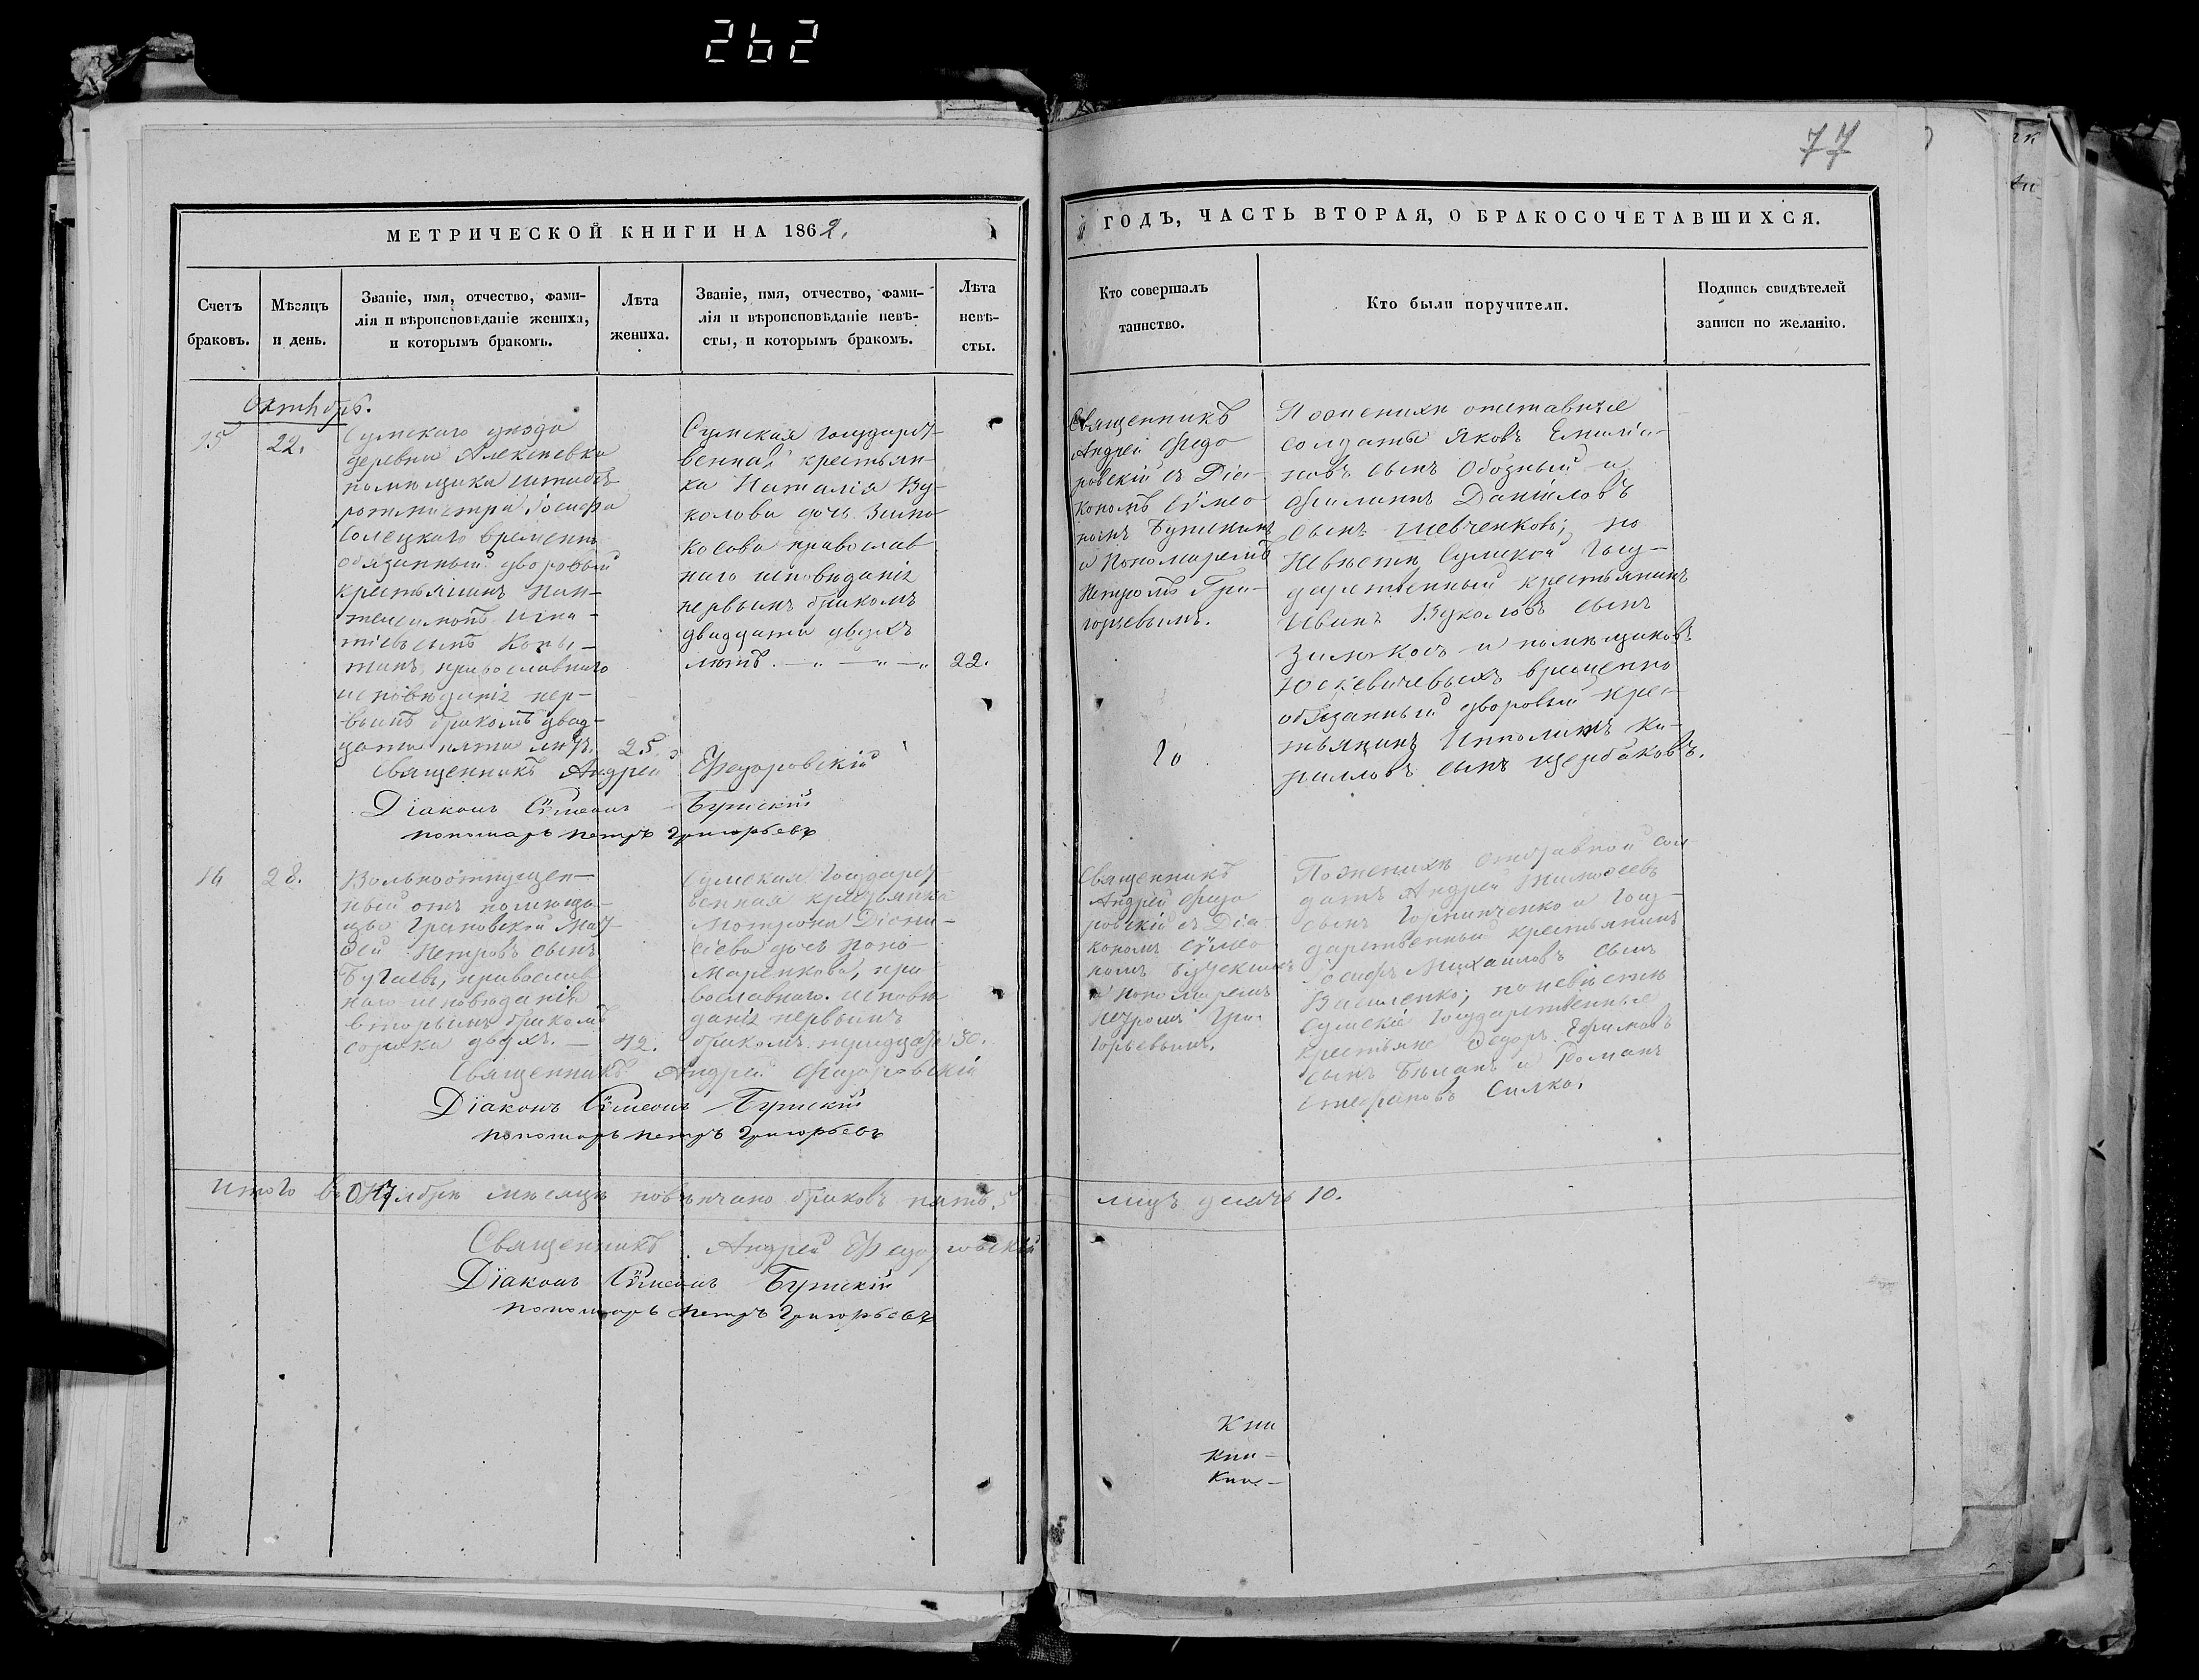 262
77
МЕТРИЧЕСКОЙ КНИГИ НА 1862.
ГОДЪ, ЧАСТЬ ВТОРАЯ, О БРАКОСОЧЕТАВШИХСЯ.
Счетъ
браковъ.
Мѣсяцъ
и день.
Званіе, имя, отчество, фами-
лія и вѣроисповѣданіе жениха,
и которымъ бракомъ.
Лѣта
жениха.
Званіе, имя, отчество, фами-
лія и вѣроисповѣданіе невѣ-
сты, и которымъ бракомъ.
Лѣта
невѣ-
сты.
Кто совершалъ
таинство.
Кто были поручители.
Подпись свидѣтелей
записи по желанію.
Октябрь.
15
22.
Сумскаго уѣзда
деревни Алексѣевки
помѣщика штабсъ
ротмистра Іосифа
Солецкаго временно
обязанный дворовый
крестьянинъ Пан-
телеимонъ Игна-
тіевъ сынъ Копы-
православнаго
исповѣданія пер-
вымъ бракомъ двад-
цати пяти лѣтъ.
25.
Сумская государст-
венная крестьян-
ка Наталія Ву-
колова дочь Зимо-
косова православ
наго исповѣданія
первымъ бракомъ
двадцати двухъ
лѣтъ.
22.
Священникъ
Андрей Ѳедо
ровскій съ Діа-
кономъ Сѵмео
номъ Буцскимъ
и Пономаремъ
Петромъ Гри-
горьевымъ.
По женихѣ отставные
солдаты Яковъ Емилiа-
новъ сынъ Обозный и
Филиппъ Даніиловъ
сынъ Шевченковъ; по
невѣстѣ Сумской Госу-
дарственный крестьянинъ
Иванъ Вуколовъ сынъ
Зимокосъ и помѣщиковъ
Юскевичевыхъ временно
обязанный дворовый крес-
тьянинъ Ипполитъ Ки-
рилловъ сынъ Щербаковъ.
Священникъ Андрей Ѳедоровскій
Діаконъ Сѵмеонъ Буцскій
пономарь Петръ Григорьевъ
16
28.
Вольноотпущен-
ный отъ помѣщи-
цы Грановской Мат-
ѳей Петровъ сынъ
Бугаевъ, православ
наго исповѣданія
вторымъ бракомъ
сорока двухъ. —
42.
Сумская Государст
венная крестьянка
Мотрона Діони-
сіева дочь Поно-
маренкова, пра
вославнаго исповѣ
данія первымъ
бракомъ тридцати
30.
Священникъ
Андрей Ѳедо
ровскій съ Діа
кономъ Сѵмео
номъ Буцскимъ
и Пономаремъ
Петромъ Гри-
горьевымъ.
По женихѣ отставной сол
датъ Андрей Тимоѳеевъ
сынъ и Госу-
дарственный крестьянинъ
Іосифъ Михаиловъ сынъ
Василенко; по невѣстѣ
Сумскіе Государственные
крестьяне Ѳедоръ Ефимовъ
сынъ Бѣланъ и Романъ
Стефановъ Силко.
Священникъ Андрей Ѳедоровскій
Діаконъ Сѵмеонъ Буцскій
пономарь Петръ Григорьевъ
Итого въ Октябрѣ мѣсяцѣ повѣнчано браковъ пять. 5
лицъ десять 10.
Священникъ Андрей Ѳедоровскій
Діаконъ Сѵмеонъ Буцскій
пономарь Петръ Григорьевъ
Кни
Кни-
Кни-